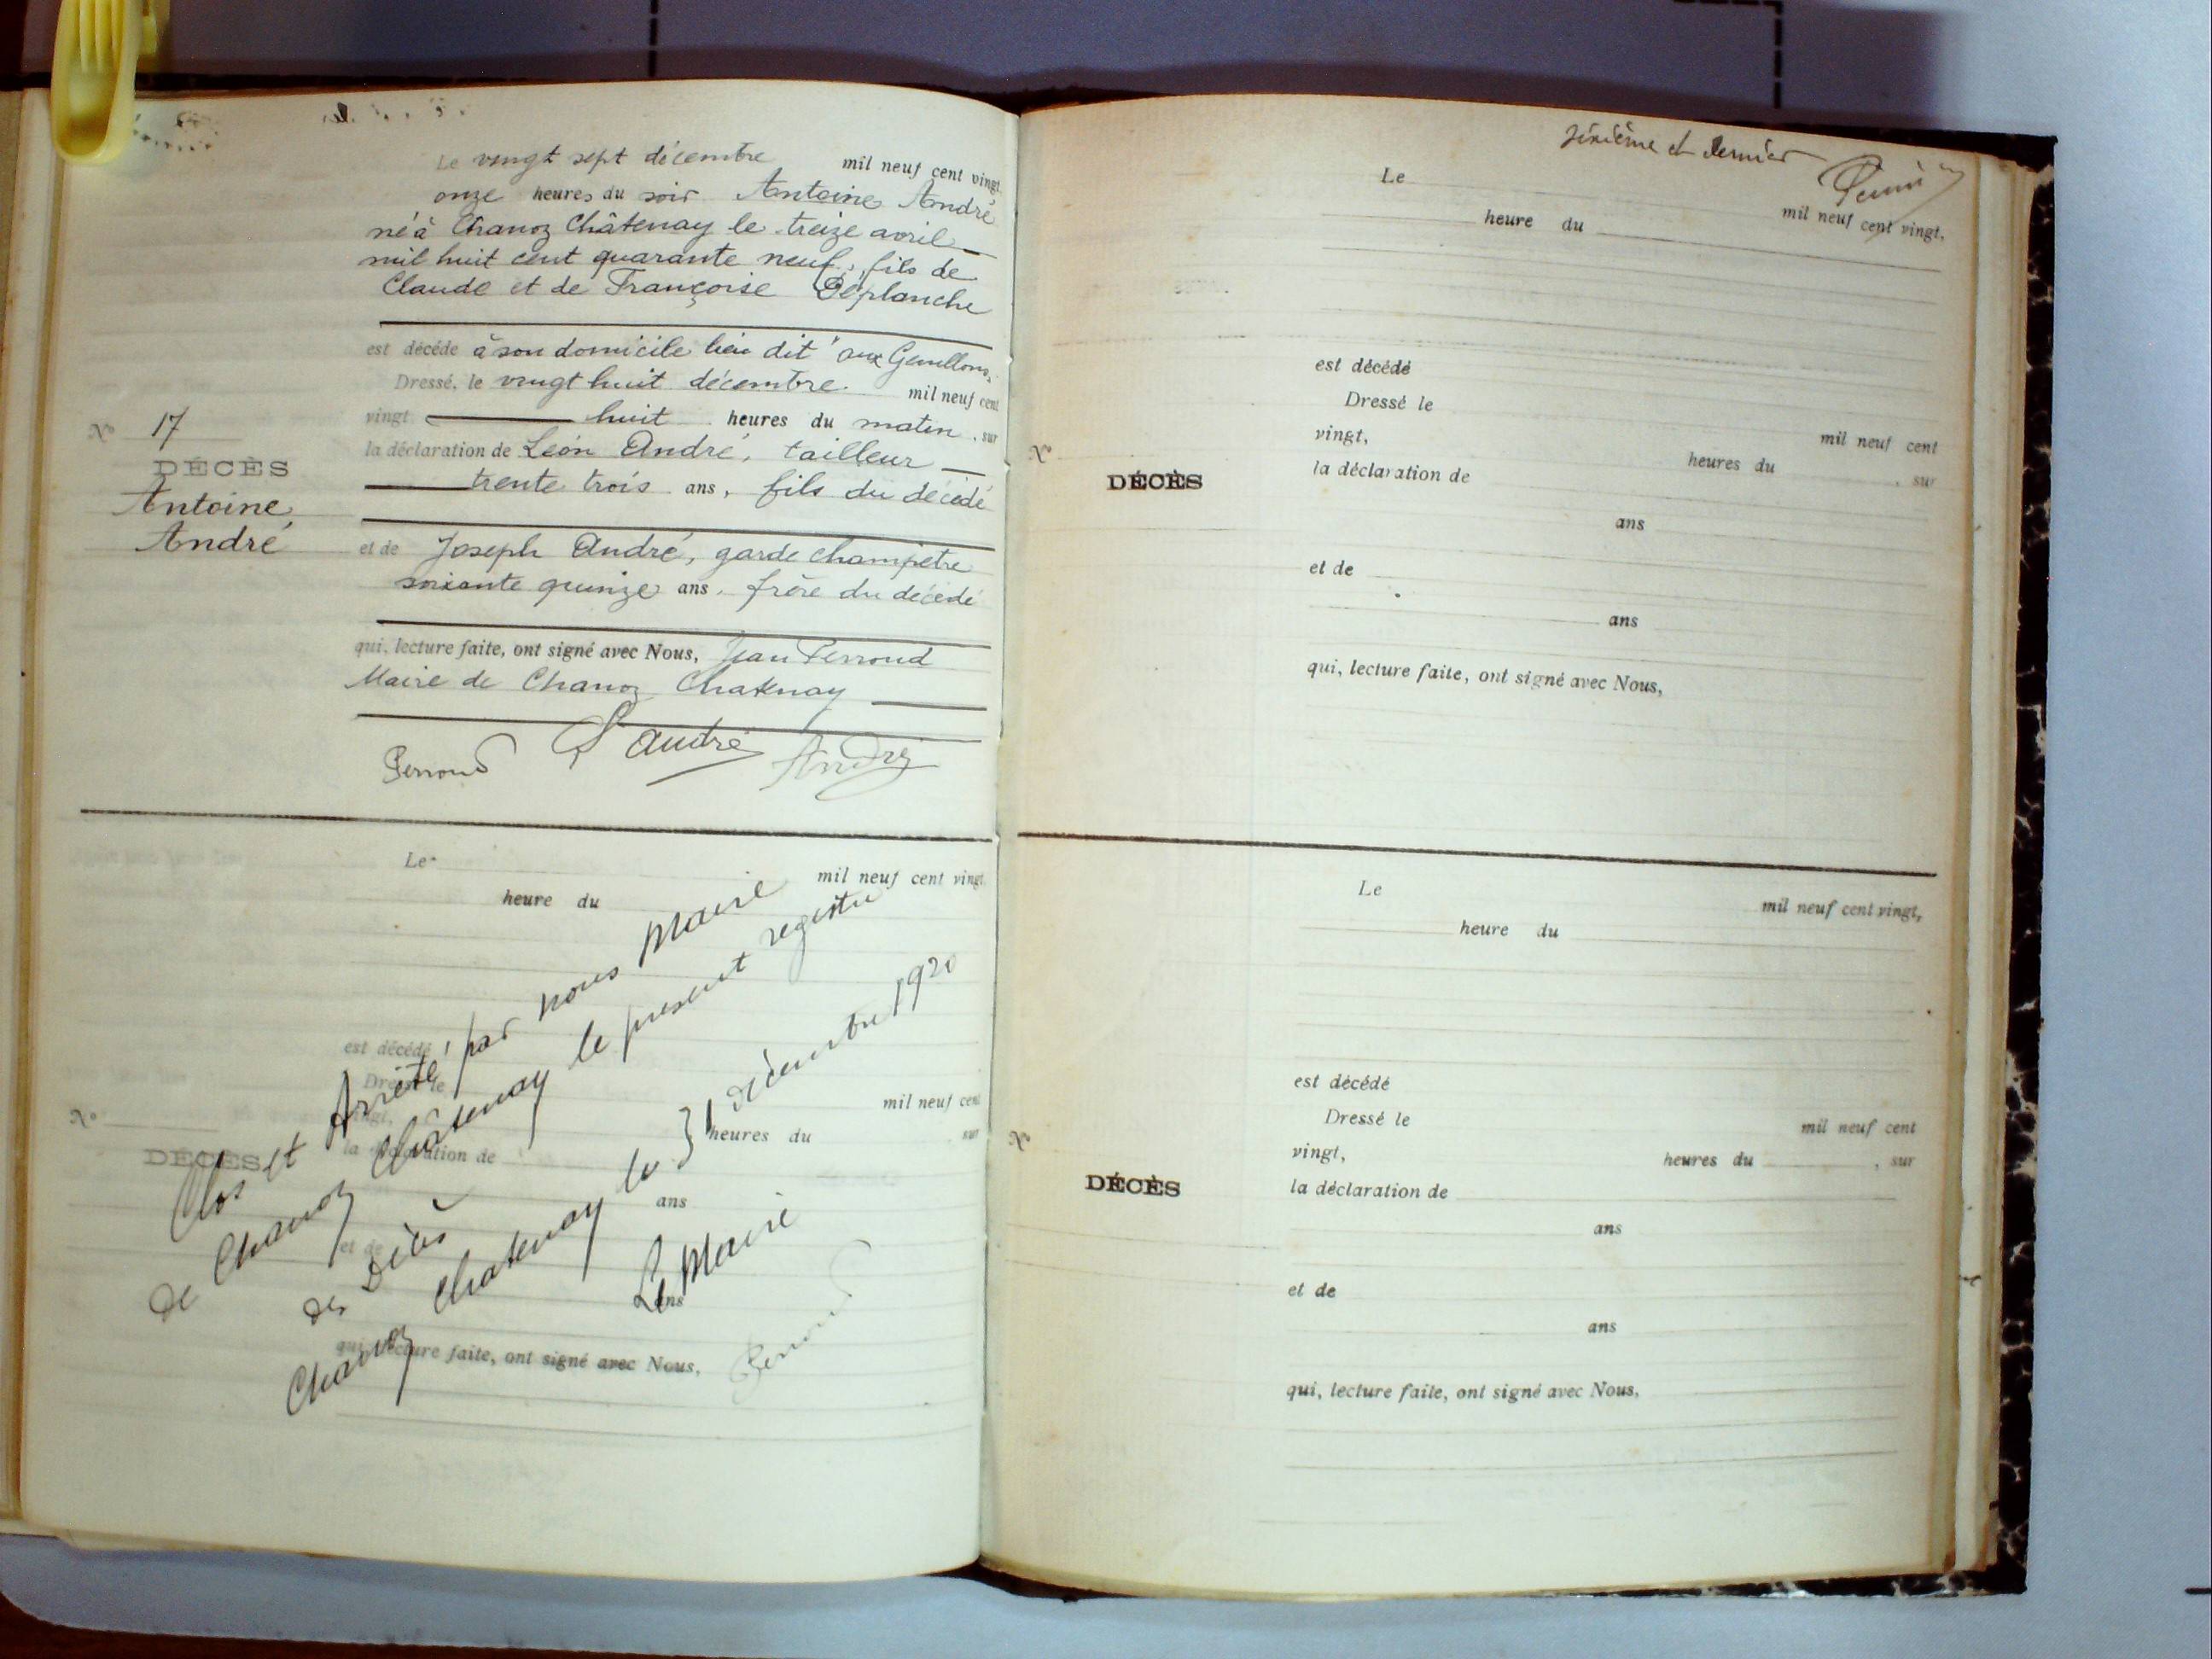 Le vingt sept décembre mil neuf cent vingt,
onze heures du soir Antoine André
né à Chanoz Châtenay le treize avril
mil huit cent quarante neuf, fils de
Claude et de Françoise Déplanche
est décédé à son domicile lieu dit "aux
Dressé, le vingt huit décembre mil neuf cent
vingt huit heures du matin, sur
la déclaration de Léon André, tailleur
trente trois ans, fils du décédé
et de Joseph André, garde champêtre
soixante quinze ans, frère du décédé
qui, lecture faite, ont signé avec Nous, Jean Perroud
Maire de Chanoz Chatenay
Perroud L André André
N° 17
DÉCÈS
Antoine
André
Le mil neuf cent vingt,
heure du
est décédé
Dressé le mil neuf cent
vingt, heures du , sur
la déclaration de
ans
et de
ans
qui, lecture faite, ont signé avec Nous,
N°
DÉCÈS
Clos et Arrêté par nous Maire
de Chanoz Châtenay le présent registre
des Décès
Chanoz Chatenay le 31 décembre 1920
Le Maire
Perroud
sixième et dernier
Le mil neuf cent vingt,
heure du
est décédé
Dressé le mil neuf cent
vingt, heures du , sur
la déclaration de
ans
et de
ans
qui, lecture faite, ont signé avec Nous,
N°
DÉCÈS
Le mil neuf cent vingt,
heure du
est décédé
Dressé le mil neuf cent
vingt, heures du , sur
la déclaration de
ans
et de
ans
qui, lecture faite, ont signé avec Nous,
N°
DÉCÈS